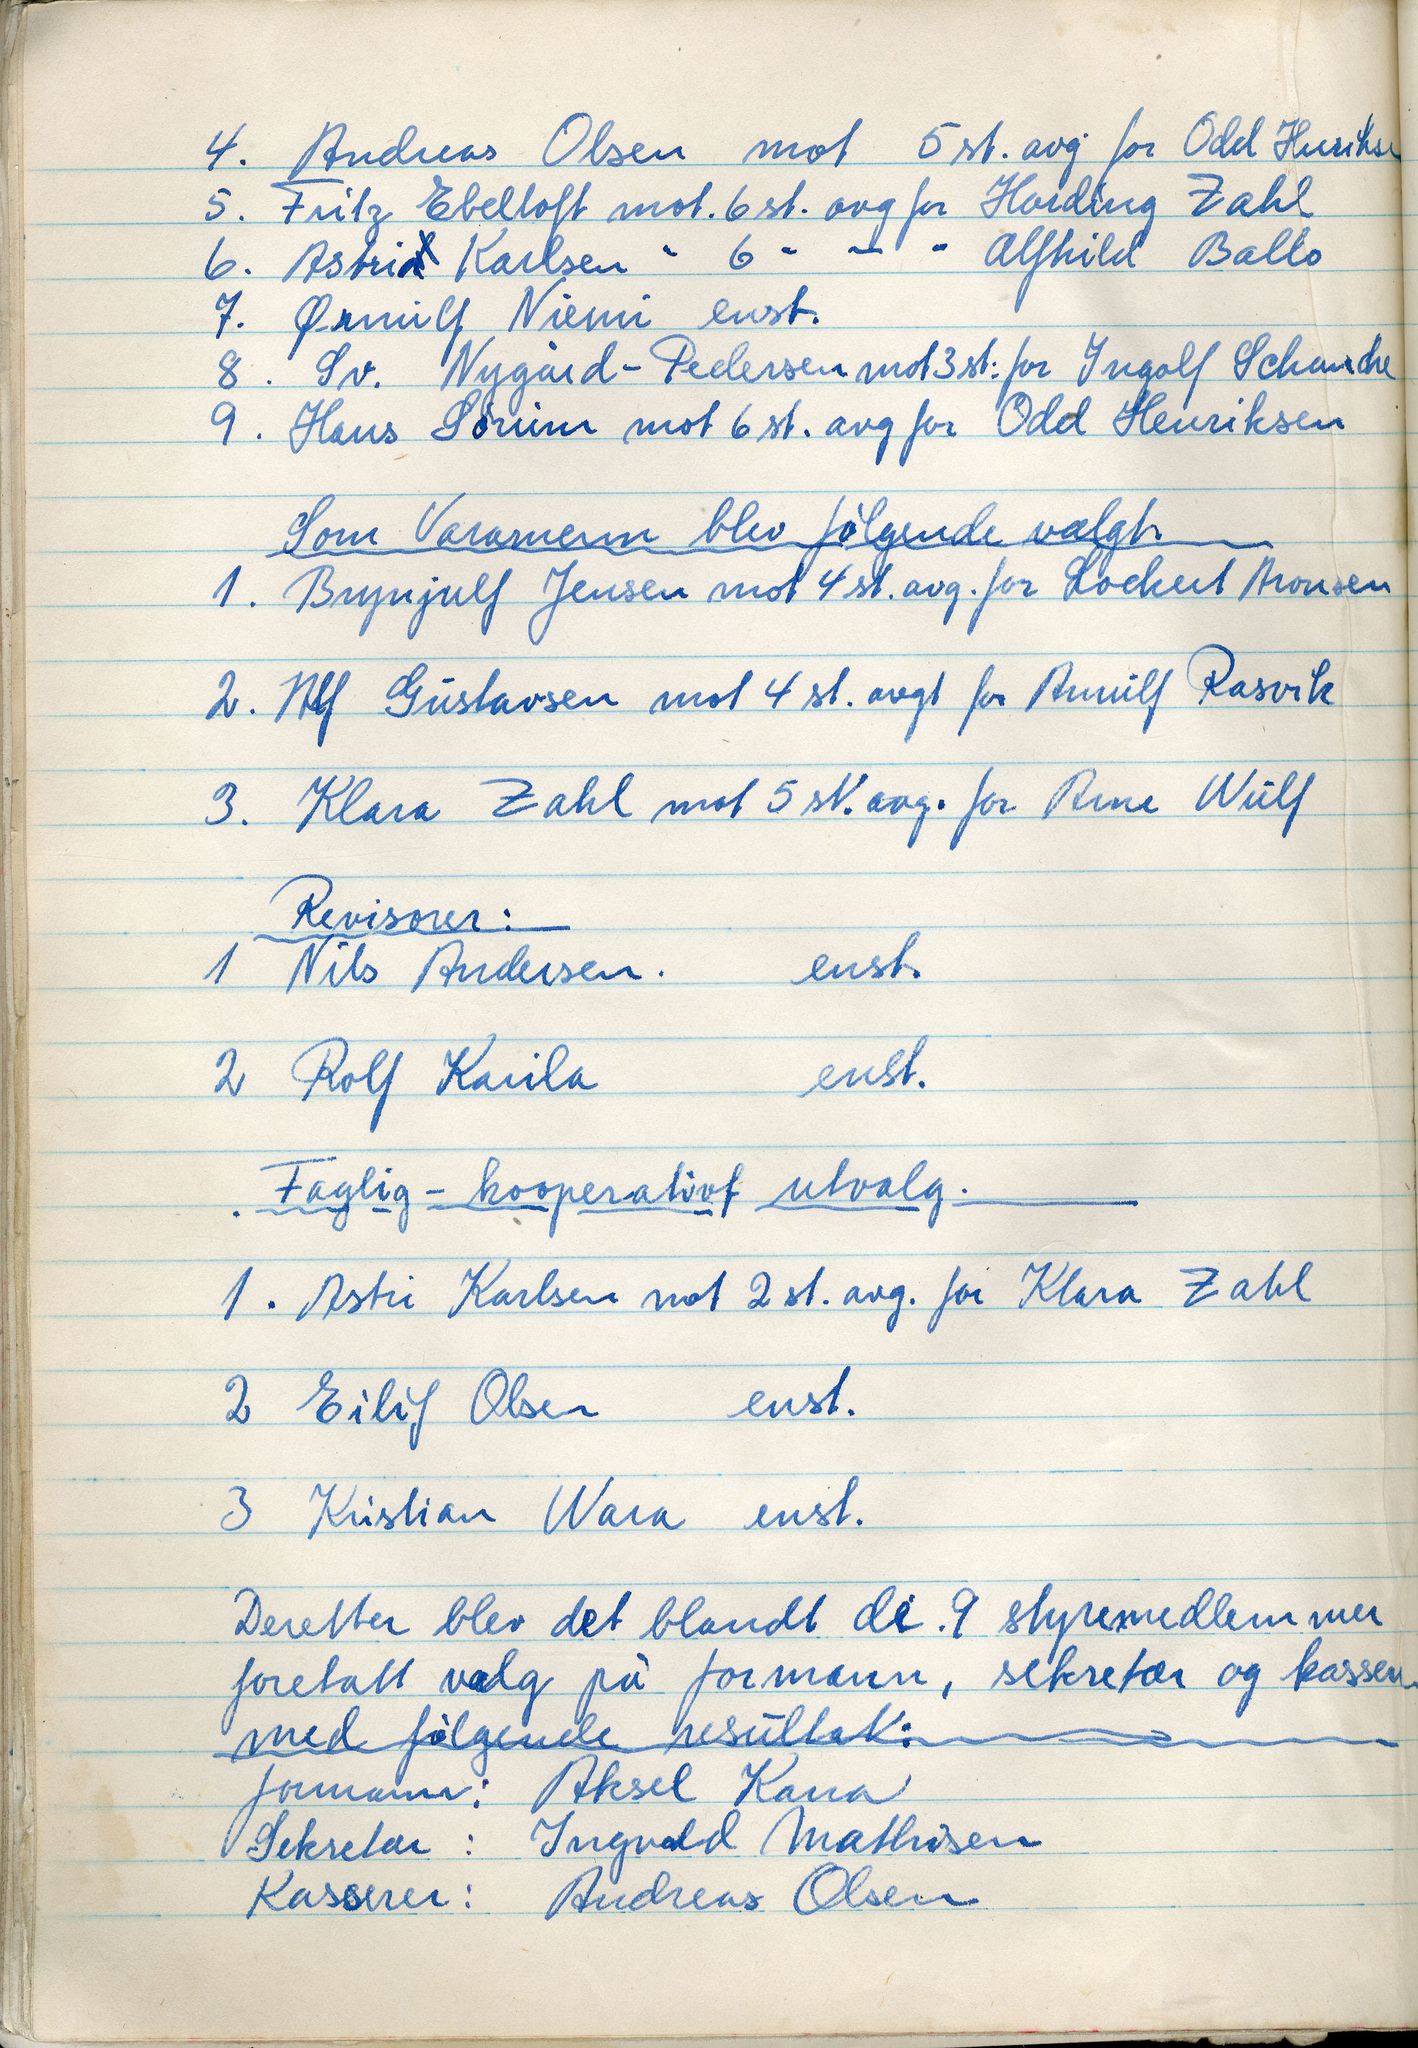 4. Andreas Olsen mot 5 st. avg for Odd Henriksen
5. Fritz Ebeltoft mot. 6 st. avg for Harding Zahl
6. Astri Karlsen " 6 " " " Alfhild Balto
7. Ørnulf Niemi enst.
8. Sv. Nygård-Pedersen mot 3 st: for Ingolf Schanche
9. Hans Sörum mot 6 st. avg for Odd Henriksen
Som Varamenn blev fölgende valgt.
1. Brynjulf Jensen mot 4 st. avg. for Lockert Aronsen
2. Alf Gustavsen mot 4 st. avgt for Arnulf Rasvik
3. Klara Zahl mot 5 st. avg. for Arne Wulf
Revisorer:
1 Nils Andersen. enst.
2 Rolf Karila enst.
Faglig-kooperativt utvalg.
1. Astri Karlsen mot 2 st. avg. for Klara Zahl
2 Eilif Olsen enst.
3 Kristian Wara enst.
Deretter blev det blandt de .9 styremedlemmer
foretatt valg på formann, sekretær og kasserer
med fölgende resultat:
formann: Aksel Kana
Sekretær : Ingvald Mathisen
Kasserer: Andreas Olsen